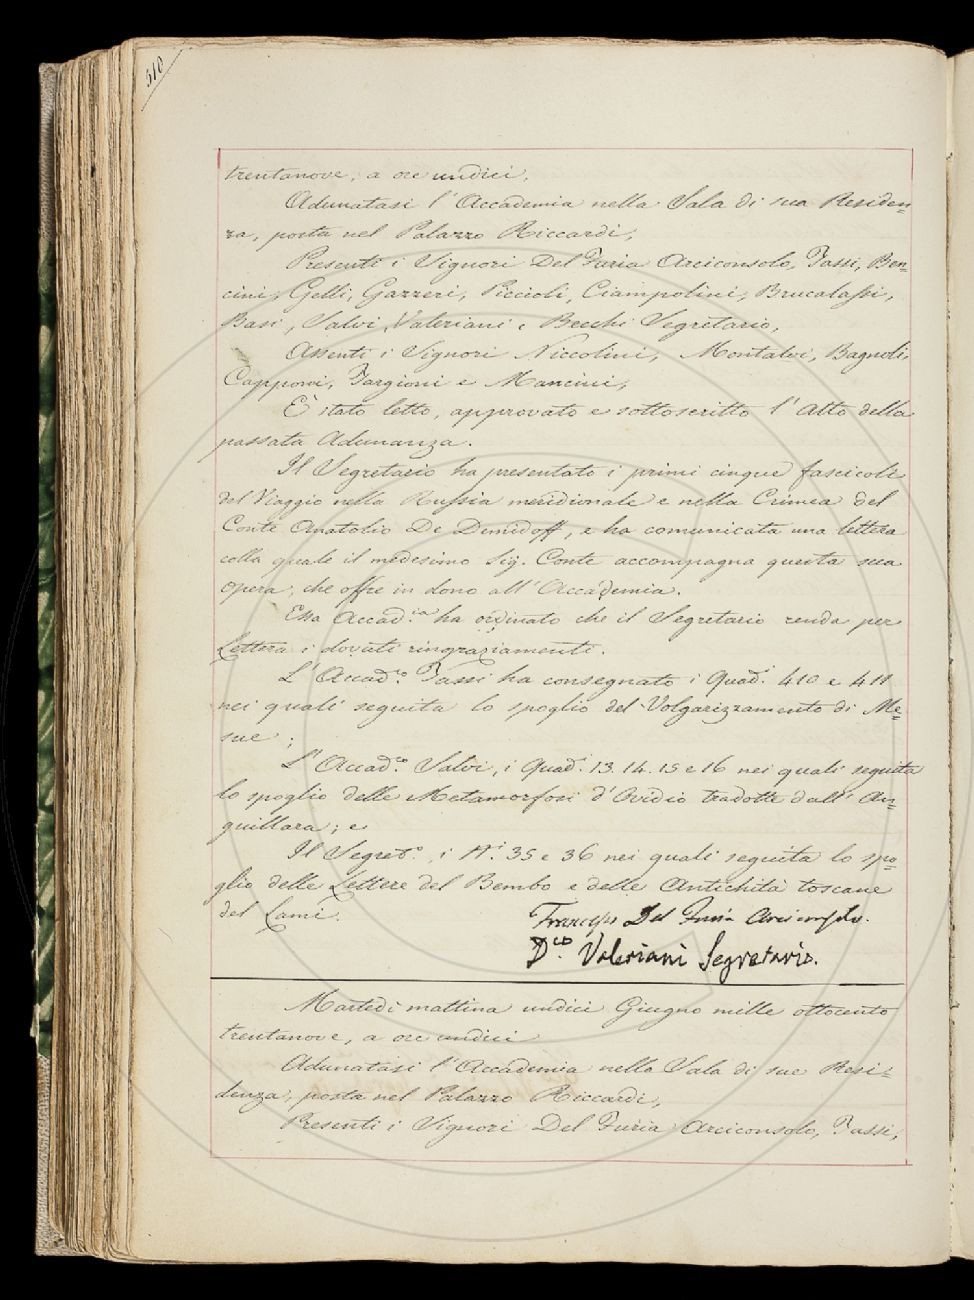 510
trentanove, a ore undici,
Adunatasi l'Accademia nella Sala di sua Residen=
za, posta nel Palazzo Riccardi,
Presenti i Signori Del Furia Arciconsolo, Tassi, Ben=
cini, Gelli, Gazzeri, Piccioli, Ciampolini, Brucalassi,
Basi, Salvi, Valeriani e Becchi Segretario,
Assenti i Signori Niccolini, Montalvi, Bagnoli,
Capponi, Targioni e Mancini,
È stato letto, approvato e sottoscritto l'Atto della
passata Adunanza.
Il Segretario ha presentato i primi cinque fascicoli
del Viaggio nella Russia meridionale e nella Crimea del
Conte Anatolio De Demidoff, e ha comunicata una lettera
colla quale il medesimo Sig. Conte accompagna questa sua
opera, che offre in dono all'Accademia.
Essa Accad.ia ha ordinato che il Segretario renda per
Lettera i dovuti ringraziamenti.
L'Accad.o Tassi ha consegnato i Quad.i 410 e 411
nei quali seguita lo spoglio del Volgarizzamento di Me=
sue;
L'Accad.co Salvi, i Quad.i 13. 14. 15 e 16 nei quali seguita
lo spoglio delle Metamorfosi d'Ovidio tradotte dall'An=
guillara; e
Il Segret.o, i N.i 35 e 36 nei quali seguita lo spo=
glio delle Lettere del Bembo e delle Antichità toscane
del Lami.
Francesco Del Furia Arciconsolo.
D.co Valeriani Segretario.
Martedì mattina undici Giugno mille ottocento
trentanove, a ore undici
Adunatasi l'Accademia nella Sala di sue Resi=
denza, posta nel Palazzo Riccardi,
Presenti i Signori Del Furia Arciconsolo, Tassi,